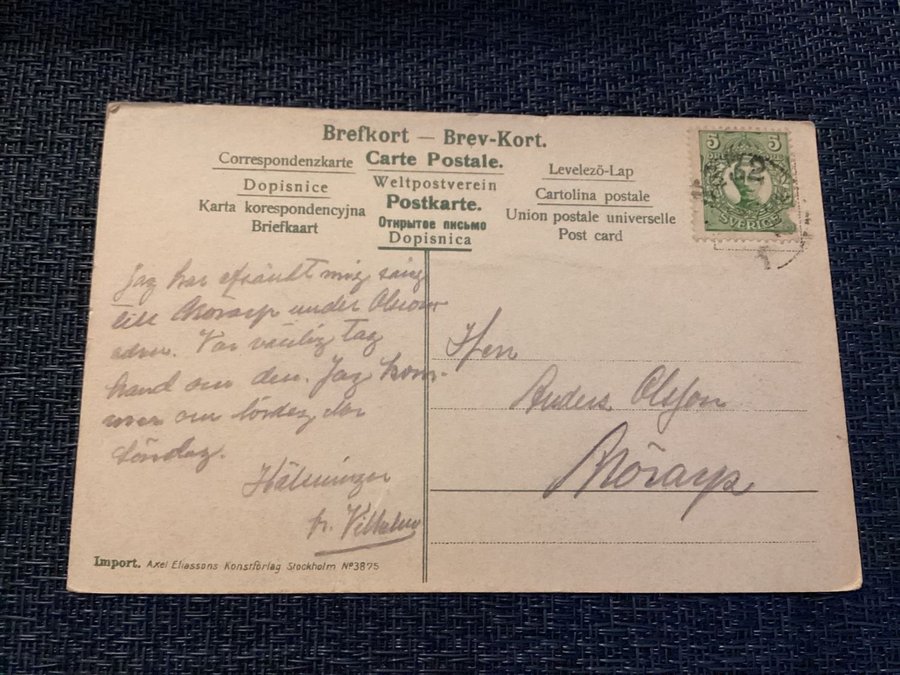 Brefkort — Brev-Kort.
Correspondenzkarte Carte Postale. Levelező-Lap
Dopisnice Weltpostverein Cartolina postale
Karta korespondencyjna Postkarte. Union postale universelle
Briefkaart Открытое письмо Post card
Dopisnica
5 5
SVERIGE
Jag har afsändt min säng
till Mörarp under Olssons
adrs. Var vänlig tag
hand om den. Jag kom-
mer om lördag eller
Söndag.
Hälsningar
fr. Vilhelm
Herr
Anders Olsson
Mörarp
Import. Axel Eliassons Konstförlag Stockholm Nº3875